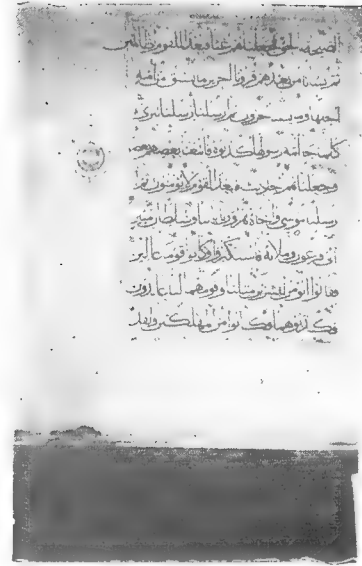 الصيحة بالحق فجعلناهم غثاء فبعدا للقوم الظالمين
ثم أنشأنا من بعدهم قرونا آخرين ما تسبق من أمة
أجلها وما يستأخرون ثم أرسلنا رسلنا تترى
كلما جاء أمة رسولها كذبوه فأتبعنا بعضهم بعضا
وجعلناهم أحاديث فبعدا لقوم لا يؤمنون ثم
أرسلنا موسى وأخاه هرون بآياتنا وسلطان مبين
إلى فرعون وملائه فاستكبروا وكانوا قوما عالين
فقالوا أنؤمن لبشرين مثلنا وقومهما لنا عابدون
فكذبوهما فكانوا من المهلكين ولقد